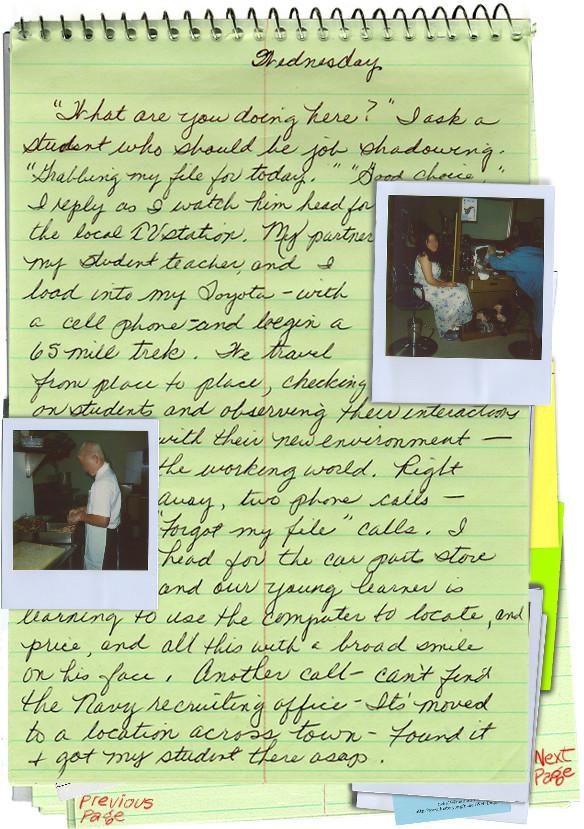 Wednesday
"What are you doing here?" I ask a
student who should be job shadowing.
"Grabbing my file for today." "Good choice,"
I reply as I watch him head for
the local TV station. My partner
my student teacher, and I
load into my Toyota - with
a cell phone - and begin a
65 mill trek. We travel
from place to place, checking
on students and observing their interactions
with their new environment —
the working world. Right
away, two phone calls —
"Forgot my file" calls. I
head for the car part store
and our young learner is
learning to use the computer to locate, and
price, and all this with a broad smile
on his face. Another call - can't find
the Navy recruiting office - It's moved
to a location across town - Found it
+ got my student there asap.
Next
Page
Previous
Page